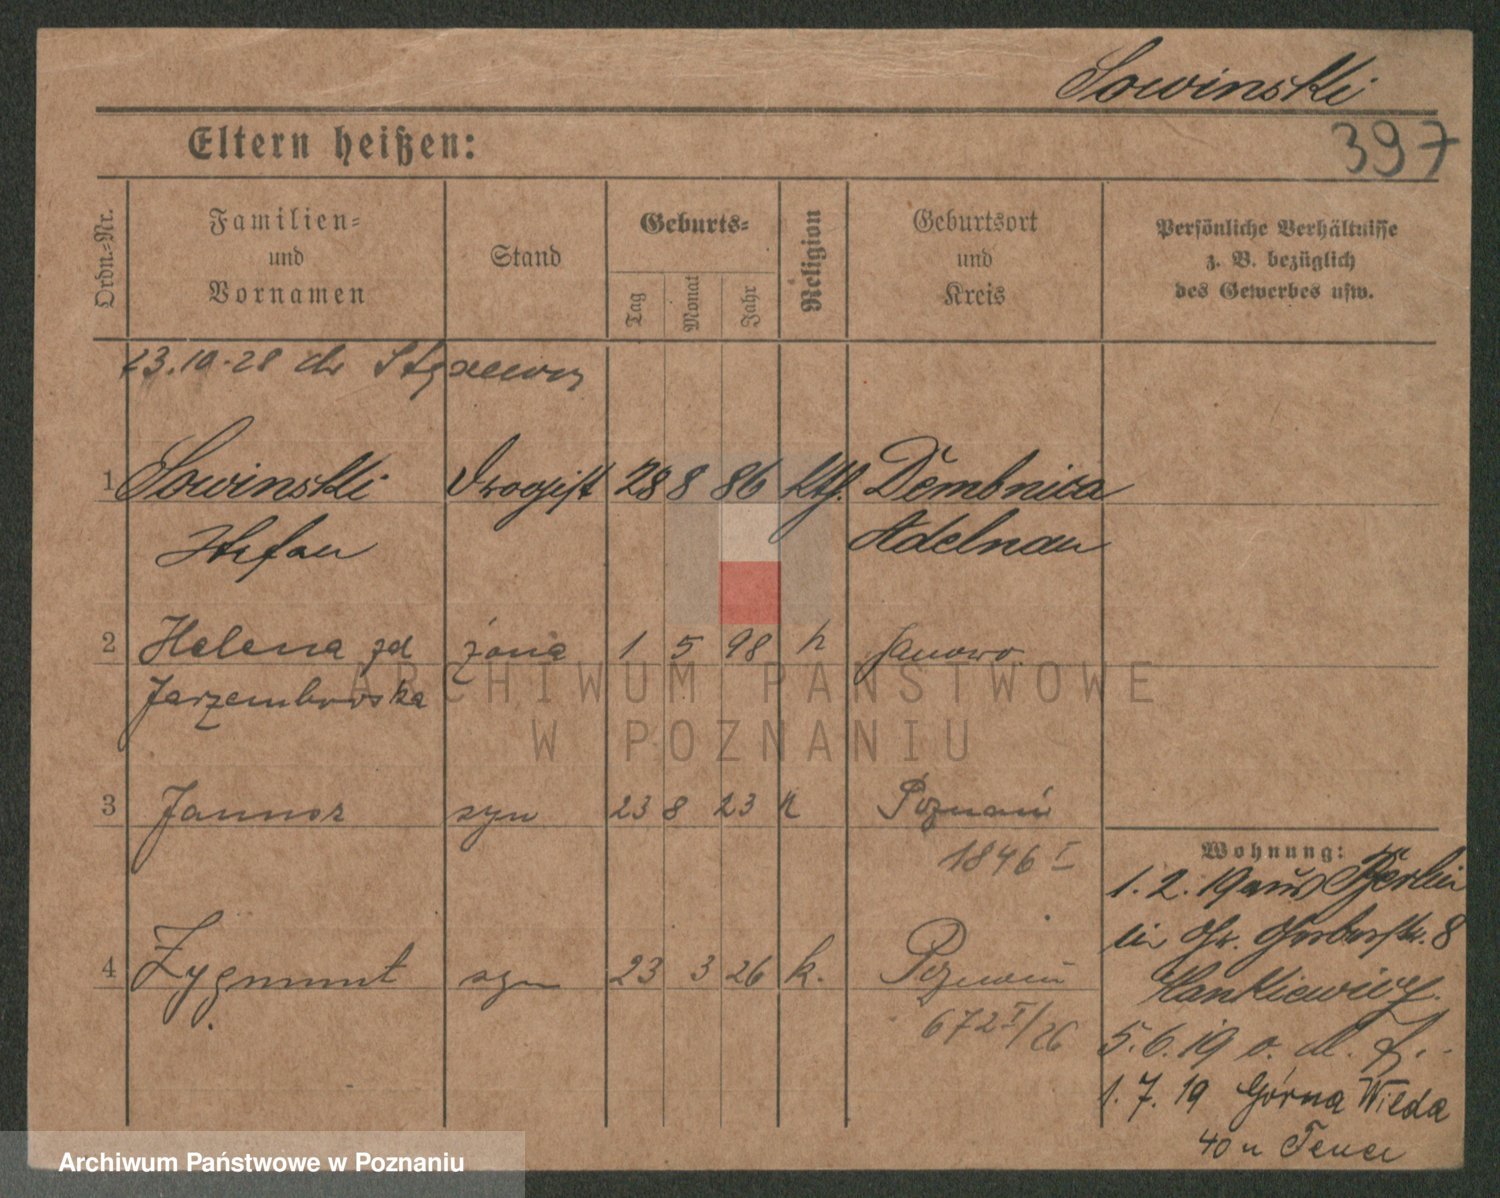 Sowinski
397
Eltern heißen:
Ordn.-Nr.
Familien- und Vornamen
Stand
Geburts-
Tag
Monat
Jahr
Religion
Geburtsort und Kreis
Persönliche Verhältnisse z. B. bezüglich des Gewerbes usw.
23.10.28
1 Sowinski Drogist 28 8 86 kth. Dembnica
Stefan Adelnau
2 Helena zd żona 1 5 98 k Janowo
Jarzembowska
ARCHIWUM PAŃSTWOWE
W POZNANIU
3 syn 23 8 23 k Poznań
1846 I
Wohnung:
1. 2. 19 aus Berlin
in Gr. Gerberstr. 8
Hankiewicz.
4 Zygmunt syn 23 3 26 k. Poznań
672 I/26
5. 6. 19
1. 7. 19 Górna Wilda
40
Archiwum Państwowe w Poznaniu